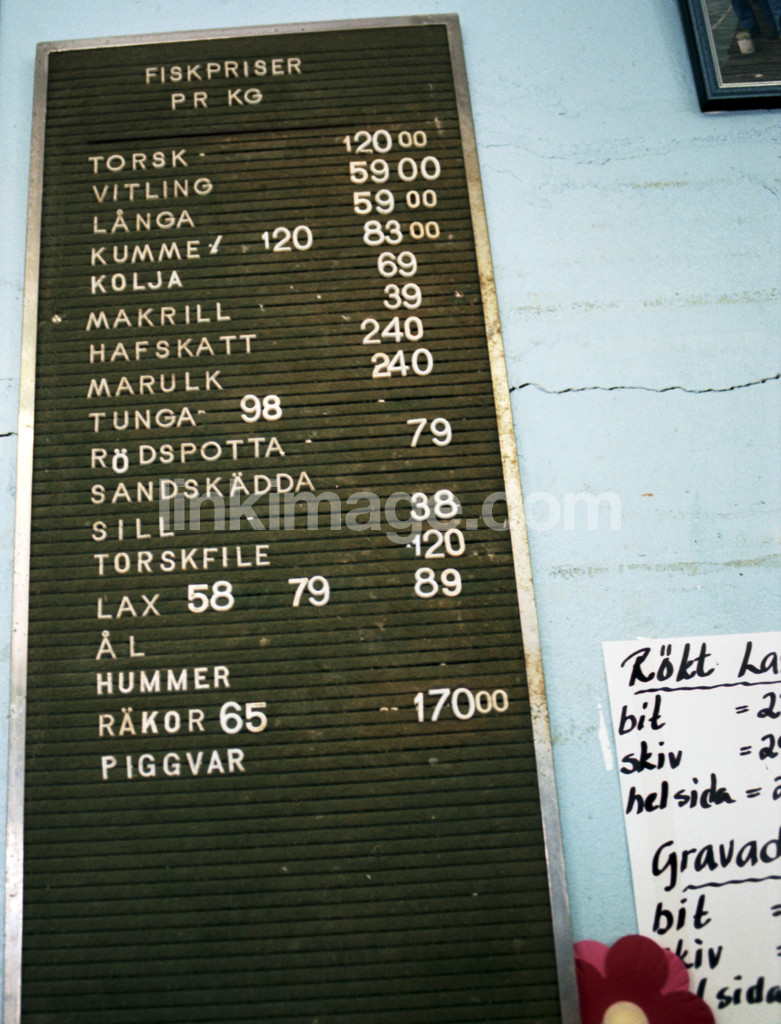 FISKPRISER
PR KG
TORSK 120 00
VITLING 59 00
LÅNGA 59 00
KUMMEL 120 83 00
KOLJA 69
MAKRILL 39
HAFSKATT 240
MARULK 240
TUNGA 98
RÖDSPOTTA 79
SANDSKÄDDA
SILL 38
TORSKFILE 120
LAX 58 79 89
ÅL
HUMMER
RÄKOR 65 170 00
PIGGVAR
Rökt
bit =
skiv =
helsida =
bit =
skiv =
linkimage.com